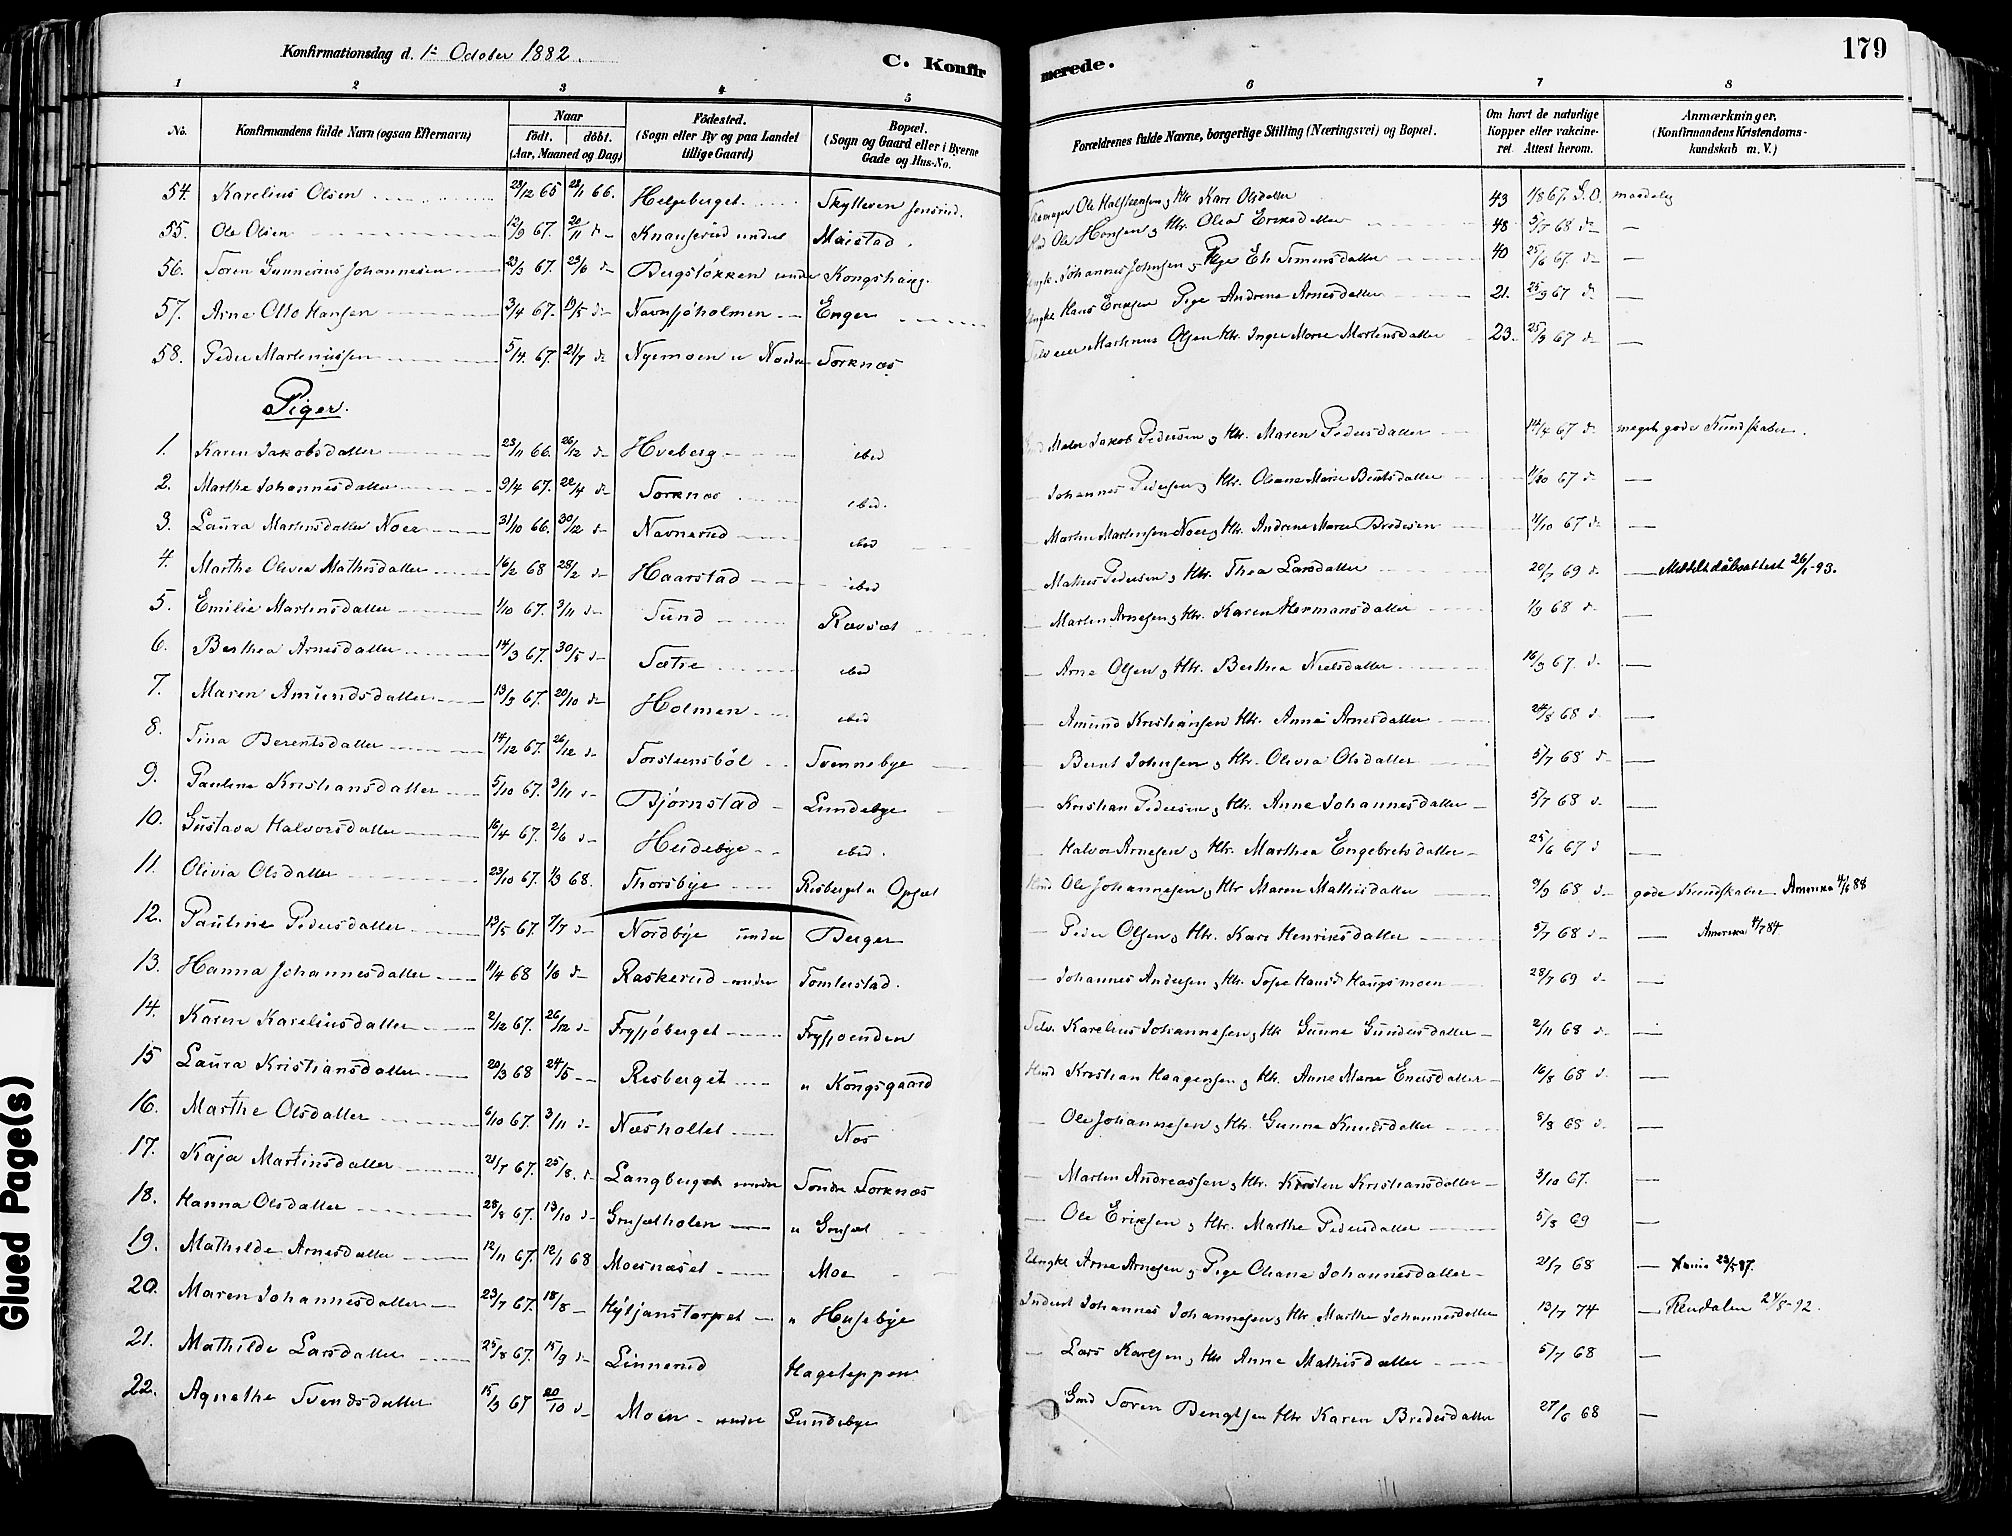 Konfirmationsdag d. 1ste October 1882.
C. Konfirmerede.
179
1 2 3 4 5 6 7 8
No. Konfirmandens fulde Navn (ogsaa Efternavn) Naar født. døbt. (Aar, Maaned og Dag) Födested. (Sogn eller By og paa Landet tillige Gaard) Bopæl. (Sogn og Gaard eller i Byerne Gade og Hus-No. Forældrenes fulde Navne, borgerlige Stilling (Næringsvei) og Bopæl. Om havt de naturlige Kopper eller vakcineret. Attest herom. Anmærkninger, (Konfirmandens Kristendomskundskab m. V.)
54. Karelius Olsen 29/12 65 28/1 66. Helgeberget. Skytteren Ole Halstensen & Htr. Kari Olsdatter 43 1/8 67 maadelig
55. Ole Olsen 12/9 67. 20/11 d— Knauserud under Maistad. Ole Hansen & Htr. Olea Eriksdatter 48 5/7 68 d— —
56. Søren Gunnerius Johannesen 23/3 67. 23/6 d— Bergsløkken under Kongshaug. Johannes Johnsen & Pige Eli Simensdatter 40 25/6 67. d— —
57. Arne Otto Hansen 3/4 67. 19/5 d— Navnsjøholmen Enger Ungk. Hans Eriksen Pige Andrine Arnesdatter 21. 25/9 67 d. —
58. Peder Martiniussen 5/4. 67. 21/7 d— Nyemoen u Nordre Torknæs Selveier Martinus Olsen Htr. Inger Marie Martinsdatter 23. 25/9 67 d— —
Piger.
1. Karen Jakobsdatter 23/11 66. 26/12 d— Hveberg ibid Maler Jakob Pedersen & Htr. Maren Pedersdatter 14/4 67 d. meget gode Kundskaber.
2. Marthe Johannesdatter 9/4 67. 22/4 d— Torknæs ibid. Johannes Pedersen & Htr. Oleane Marie Berntsdatter 11/10 67 d —
3. Laura Martinsdatter Noer 31/10 66. 30/12 d— Navnerud ibid Martin Martinsen Noer & Htr. Andrine Marie Bredesen 11/10 67 d. —
4. Marthe Olivia Mathisdatter 16/2 68 28/2 d— Haarstad ibid Mathis Pedersen & Htr. Thea Larsdatter 20/7 69 d. — Meddelt dåbsattest 26/1-93.
5. Emilie Martinsdatter 1/10 67. 3/11 d— Sund Rævsæt Martin Arnesen & Htr. Karen Hermansdatter 1/9 68 d. —
6. Berthea Arnesdatter 14/3 67. 30/5 d— Sætre ibid Arne Olsen & Htr. Berthea Nielsdatter 16/3 67. d. —
7. Maren Amundsdatter 13/9 67. 20/10 d— Holmen ibid Amund Kristiansen Htr. Anne Arnesdatter 24/8 68 d. —
8. Tina Berentsdatter 14/12 67. 26/12 d— Torsteensbøl Svennebye Bernt Johnsen & Htr. Olivia Olsdatter 5/7 68 d— —
9. Pauline Kristiansdatter 5/10 67. 3/11 d— Bjørnstad Lundebye Kristian Pedersen & Htr. Anne Johannesdatter 5/7 68 d. —
10. Gustava Halvorsdatter 16/4 67. 2/6 d— Heidebye ibid. Halvor Arnesen & Htr. Marthea Engebretsdatter 25/6 67 d —
11. Olivia Olsdatter 23/10 67. 1/3 68. Thorsbye Risberget u Opsæt Hmd Ole Johannesen & Htr Maren Mathisdatter 9/9 68 d— gode Kundskaber Amerika 4/5 88
12. Pauline Pedersdatter 13/5 67. 7/7 d— Nordbye under Berger Peder Olsen & Htr. Kari Henriksdatter 5/7 68 d— — Amerika 4/7 84
13. Hanna Johannesdatter 11/4 68 1/6 d— Raskerud under Tomterstad. Johannes Andersen & Htr. Hansd Haugsmoen 28/7 69 d. —
14. Karen Kareliusdatter 2/12 67. 26/12 d— Frysjøberget Frysjøenden Selv. Karelius Johannesen & Htr Gunne Gundersdatter 2/11 68 d. —
15 Laura Kristiansdatter 20/3 68 24/5 — Risberget u Kongsgaard Hmd Kristian Haagensen & Htr. Anne Marie Eneesdatter 16/8 68 d. —
16. Marthe Olsdatter 6/10 67. 3/11 d— Næsholtet Nos Ole Johannesen & Htr. Gunne Knudsdatter 8/8 68 d. —
17. Kaja Martinsdatter 21/7 67. 25/8. d— Langberget under Søndre Torknæs Martin Andreassen & Htr. Kirsten Kristiansdatter 3/10 67. —
18. Hanna Olsdatter 28/8 67. 13/10 d— Grusætholen u Grusæt Ole Eriksen & Htr. Marthe Pedersdatter 5/8 69 —
19. Mathilde Arnesdatter 12/11 67. 12/1 68 Moesnæset Moe Ungk Arne Arnesen & Pige Oleane Johannesdatter 21/7 68 — Xania 23/5 87.
20. Maren Johannesdatter 23/7 67. 18/8 — Kyljanstorpet u Husebye Inderst Johannes Johannesen & Htr Marthe Johannesdatter 13/7 74 — Rendalen 24/8-92.
21. Mathilde Larsdatter 25/8 67. 15/9 d— Linnerud Hageteppen Lars Karlsen & Htr Anne Mathisdatter 5/7 68 —
22. Agnethe Svendsdatter 15/9 67 20/10 d— Moen under Lundebye Gmd Søren Bengtsen Htr Karen Bredesdatter 27/6 68 —
Glued Page(s)